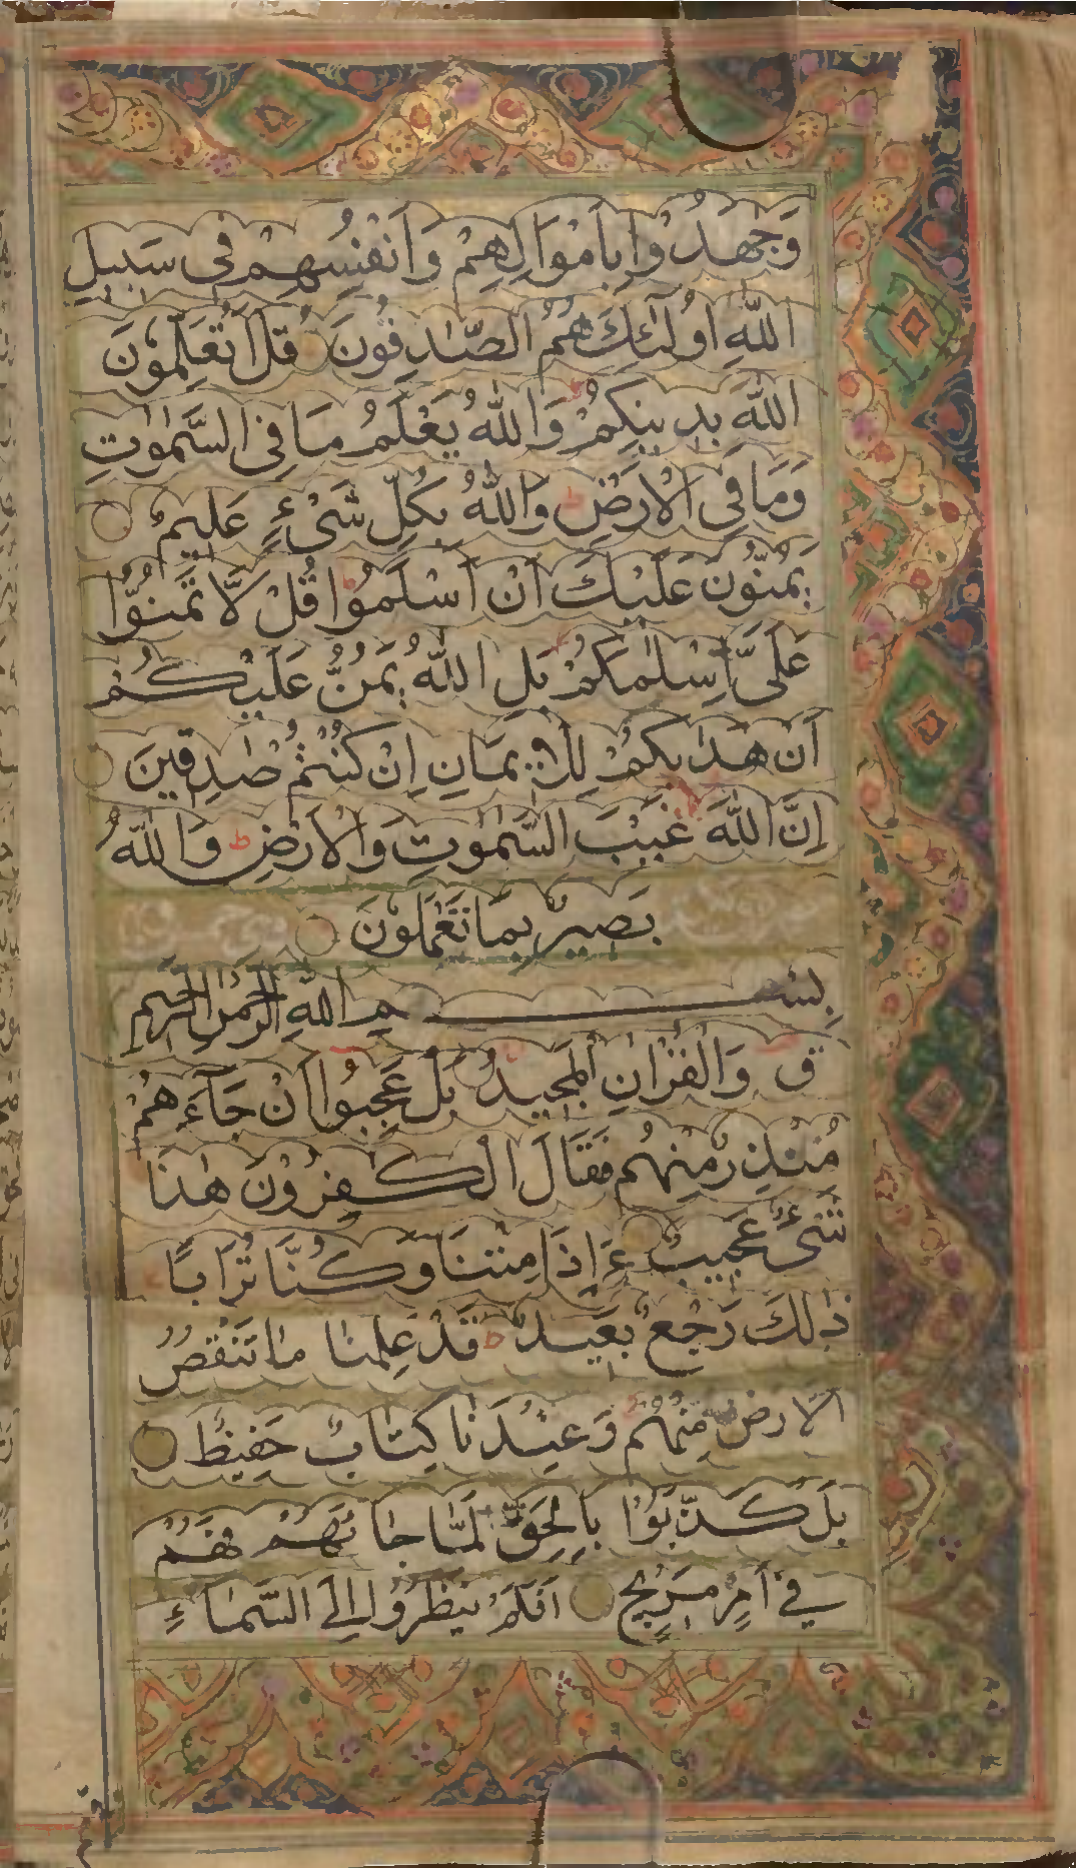 وَجٰهَدُوْا بِاَمْوَالِهِمْ وَاَنْفُسِهِمْ فِى سَبِيلِ
اللّٰهِ اُولٰٓئِكَ هُمُ الصّٰدِقُونَ قُلْ اَتُعَلِّمُوْنَ
اللّٰهَ بِدِينِكُمْ ط وَاللّٰهُ يَعْلَمُ مَا فِى السَّمٰوٰتِ
وَمَا فِى الْاَرْضِ ط وَاللّٰهُ بِكُلِّ شَىْءٍ عَلِيمٌ
يَمُنُّونَ عَلَيْكَ اَنْ اَسْلَمُوْا ط قُلْ لَّا تَمُنُّوْا
عَلَىَّ اِسْلٰمَكُمْ بَلِ اللّٰهُ يَمُنُّ عَلَيْكُمْ
اَنْ هَدٰىكُمْ لِلْاِيمَانِ اِنْ كُنْتُمْ صٰدِقِينَ
اِنَّ اللّٰهَ غَيْبَ السَّمٰوٰتِ وَالْاَرْضِ ط وَاللّٰهُ
بَصِيرٌ بِمَا تَعْمَلُونَ
بِسْمِ اللّٰهِ الرَّحْمٰنِ الرَّحِيمِ
قٓ وَالْقُرْاٰنِ الْمَجِيدِ بَلْ عَجِبُوا اَنْ جَآءَهُمْ
مُنْذِرٌ مِنْهُمْ فَقَالَ الْكٰفِرُوْنَ هٰذَا
شَىْءٌ عَجِيبٌ ءَاِذَا مِتْنَا وَكُنَّا تُرَابًا
ذٰلِكَ رَجْعٌ بَعِيدٌ ط قَدْ عَلِمْنَا مَا تَنْقُصُ
الْاَرْضُ مِنْهُمْ وَعِنْدَنَا كِتَابٌ حَفِيظٌ
بَلْ كَذَّبُوْا بِالْحَقِّ لَمَّا جَاءَهُمْ فَهُمْ
فِىْ اَمْرٍ مَرِيجٍ اَفَلَمْ يَنْظُرُوْا اِلَى السَّمَاءِ